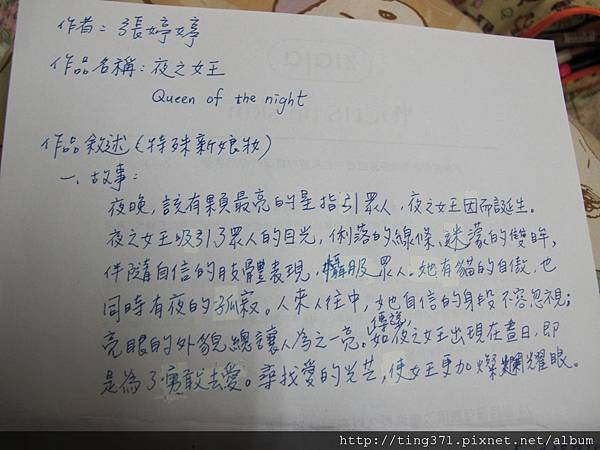 作者：張婷婷
作品名稱：夜之女王
Queen of the night
作品敘述（特殊新娘妝）
一、故事：
夜晚，該有顆最亮的星指引眾人，夜之女王因而誕生。
夜之女王吸引了眾人的目光，俐落的線條、迷濛的雙眸，
伴隨自信的肢體表現，懾服眾人。她有貓的自傲，也
同時有夜的孤寂。人來人往中，她自信的身段不容忽視；
亮眼的外貌總讓人為之一亮。傳說，如夜之女王出現在晝日，即
是為了勇敢去愛。尋找愛的光芒，使女王更加燦爛耀眼。
ZIGIO
http://ting371.pixnet.net/album